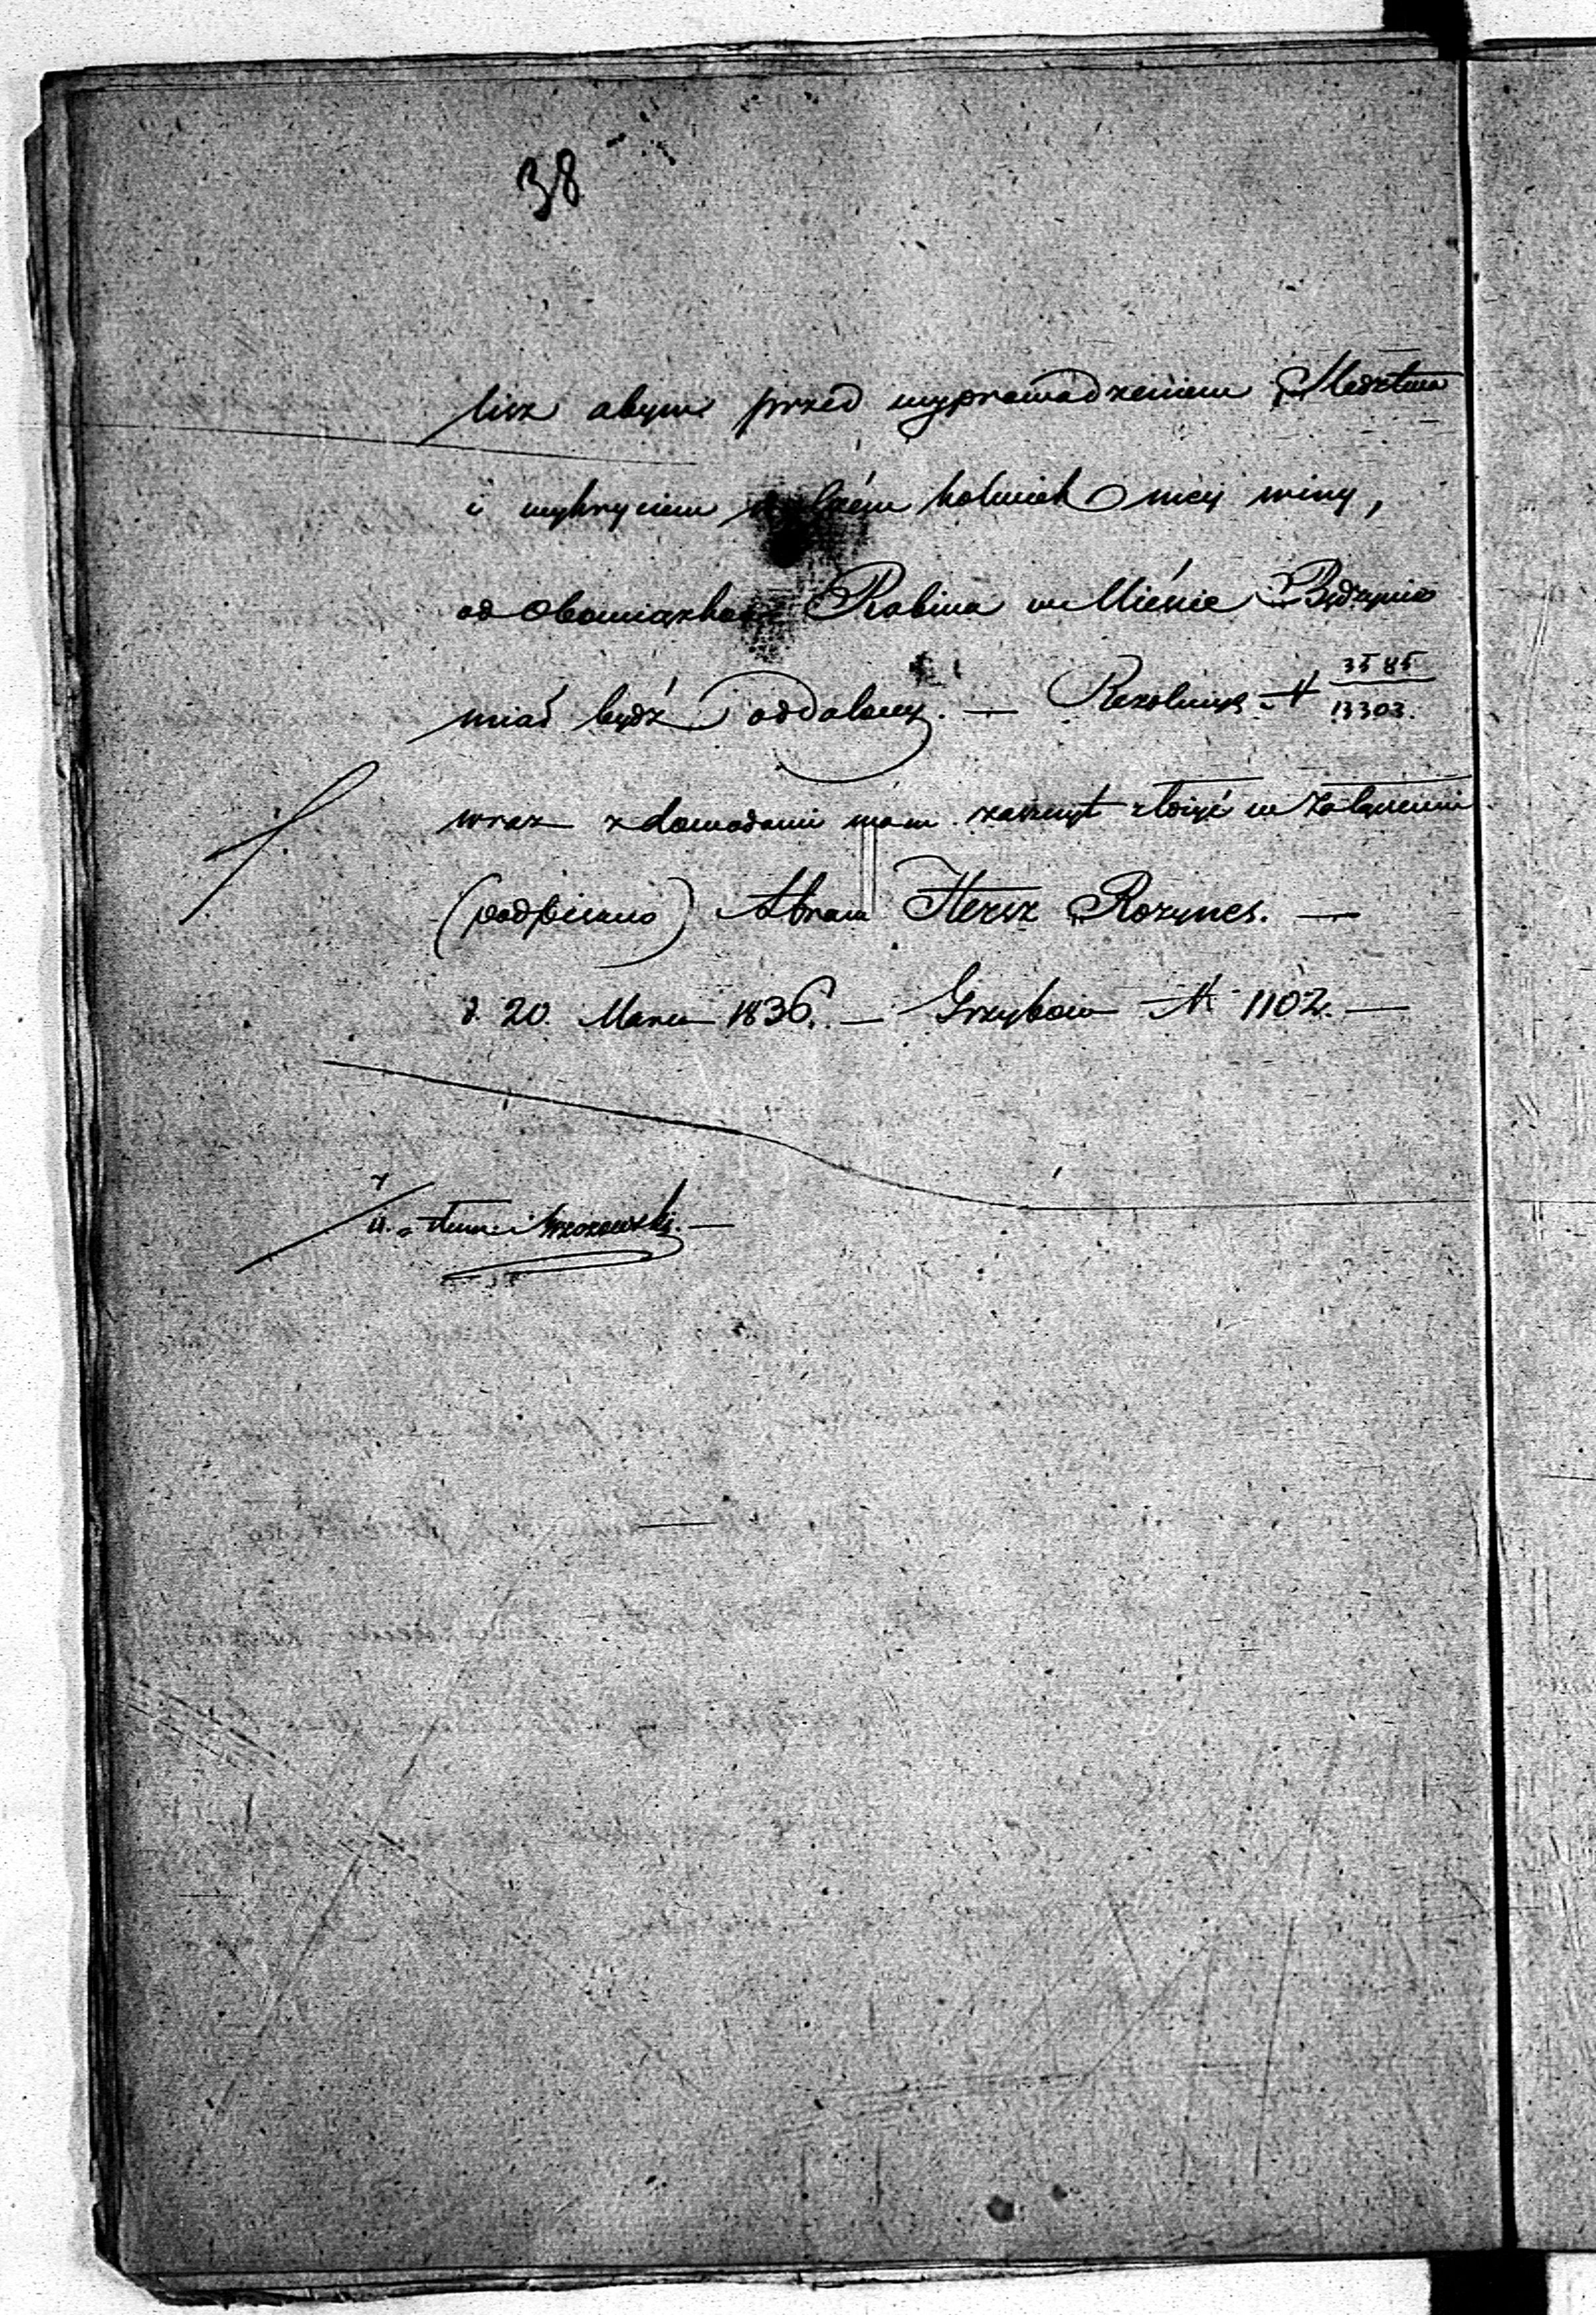 38
lisz abym przed wyprowadzeniem Śledztwa
i wykryciem kolwiek mey winy,
od obowiązków Rabina w Mieście Będzynie
miał bydź oddalony. — Rezolucyę N 3585/13303.
wraz z dowodami mam zaszczyt złożyć w załączeniu
(podpisano) Abram Hersz Rozynes. —
d. 20. Marca 1836. — Grzybów N 1102. —